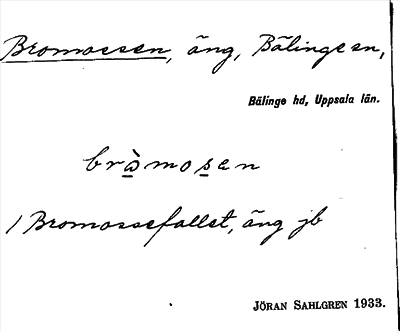 Bromossen, äng, Bälinge sn,
Bälinge hd, Uppsala län.
bràmosen
/ Bromossefallet, äng jb
JÖRAN SAHLGREN 1933.